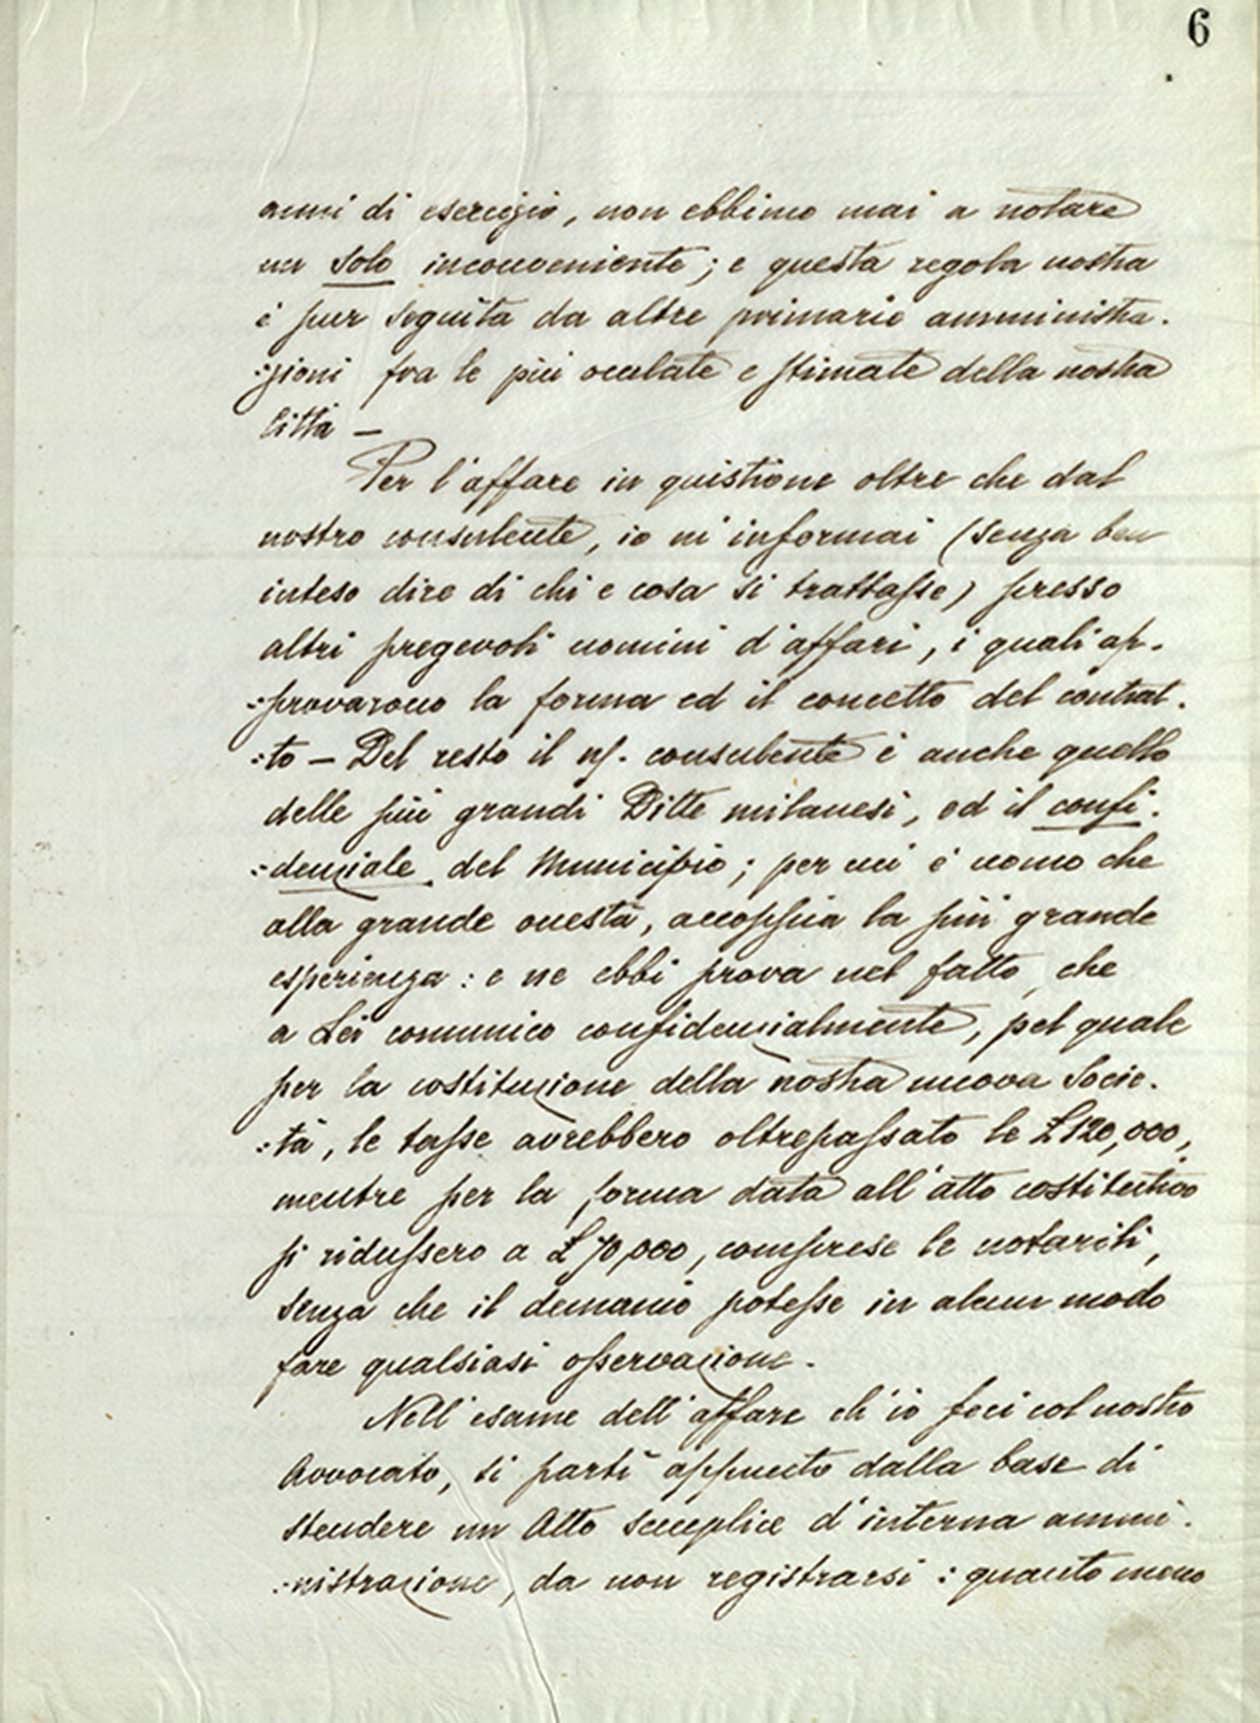 6
anni di esercizio, non ebbimo mai a notare
un solo inconveniente; e questa regola nostra
è pur seguita da altre primarie amministra.
:zioni fra le più oculate e stimate della nostra
Città —
Per l'affare in quistione oltre che dal
nostro consulente, io m'informai (senza ben
inteso dire di chi e cosa si trattasse) presso
altri pregevoli uomini d'affari, i quali ap.
:provarono la forma ed il concetto del contrat.
:to — Del resto il ns. consulente è anche quello
delle più grandi Ditte milanesi, ed il confi.
:denziale del Municipio; per cui è uomo che
alla grande onestà, accoppia la più grande
esperienza: e ne ebbi prova nel fatto, che
a Lei comunico confidenzialmente, pel quale
per la costituzione della nostra nuova Socie.
:tà, le tasse avrebbero oltrepassato le £120,000,
mentre per la forma data all'atto costitutivo
si ridussero a £70,000, comprese le notarili,
senza che il demanio potesse in alcun modo
fare qualsiasi osservazione.
Nell'esame dell'affare ch'io feci col nostro
Avvocato, si partì appunto dalla base di
stendere un Atto semplice d'interna ammi.
:nistrazione, da non registrarsi: quanto meno